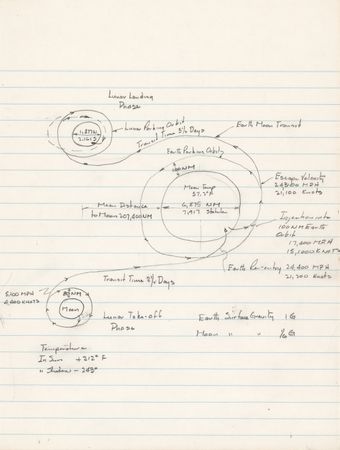 Lunar Landing
Phase
Lunar Parking Orbit
Transit Time 3½ Days
Earth Moon Transit
Earth Parking Orbit
100 NM
Mean Temp
57.2°F
6,875 NM
7,917 Statute
Mean Distance
to Moon 207,400NM
Escape Velocity
24,300 MPH
21,100 Knots
Injection into
100 NM Earth
Orbit
17,400 MPH
15,1000 KNOTS
Earth Re-entry 24,400 MPH
21,200 Knots
Transit Time 3½ Days
5100 MPH
80 NM
Moon
Lunar Take-off
Phase
Earth Surface Gravity 1G
Moon " " ⅙G
Temperature
In Sun +212° F
" Shadow -243°